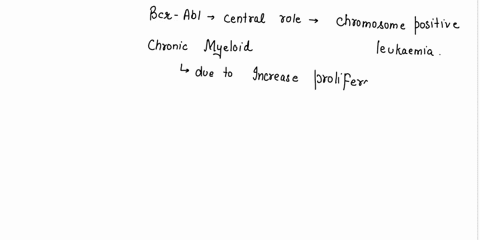 Bcr-Abl → central role → chromosome positive
Chronic Myeloid leukaemia.
↳ due to Increase prolifer